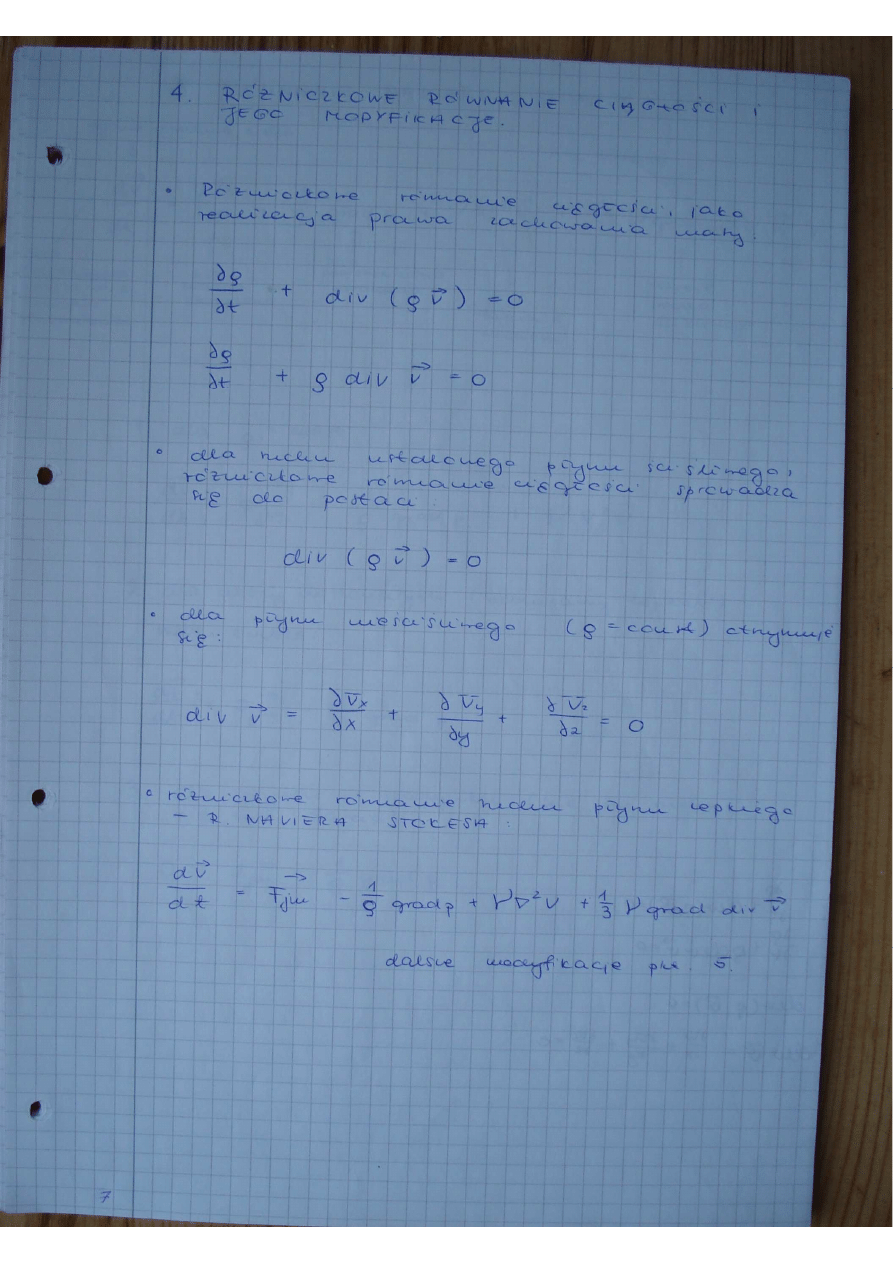 4. RÓŻNICZKOWE RÓWNANIE CIĄGŁOŚCI I
JEGO MODYFIKACJE.
• Różniczkowe równanie ciągłości, jako
realizacja prawa zachowania masy.
∂ρ/∂t + div (ρ v⃗) = 0
∂ρ/∂t + ρ div v⃗ = 0
• dla ruchu ustalonego płynu ściśliwego,
różniczkowe równanie ciągłości sprowadza
się do postaci
div (ρ v⃗) = 0
• dla płynu nieściśliwego (ρ = const) otrzymuje
się:
div v⃗ = ∂Vx/∂x + ∂Vy/∂y + ∂Vz/∂z = 0
• różniczkowe równanie ruchu płynu lepkiego
– R. NAVIERA STOKESA:
dv⃗/dt = F⃗jm - 1/ρ grad p + ν∇²v + 1/3 ν grad div v⃗
dalsze modyfikacje pkt. 5.
7